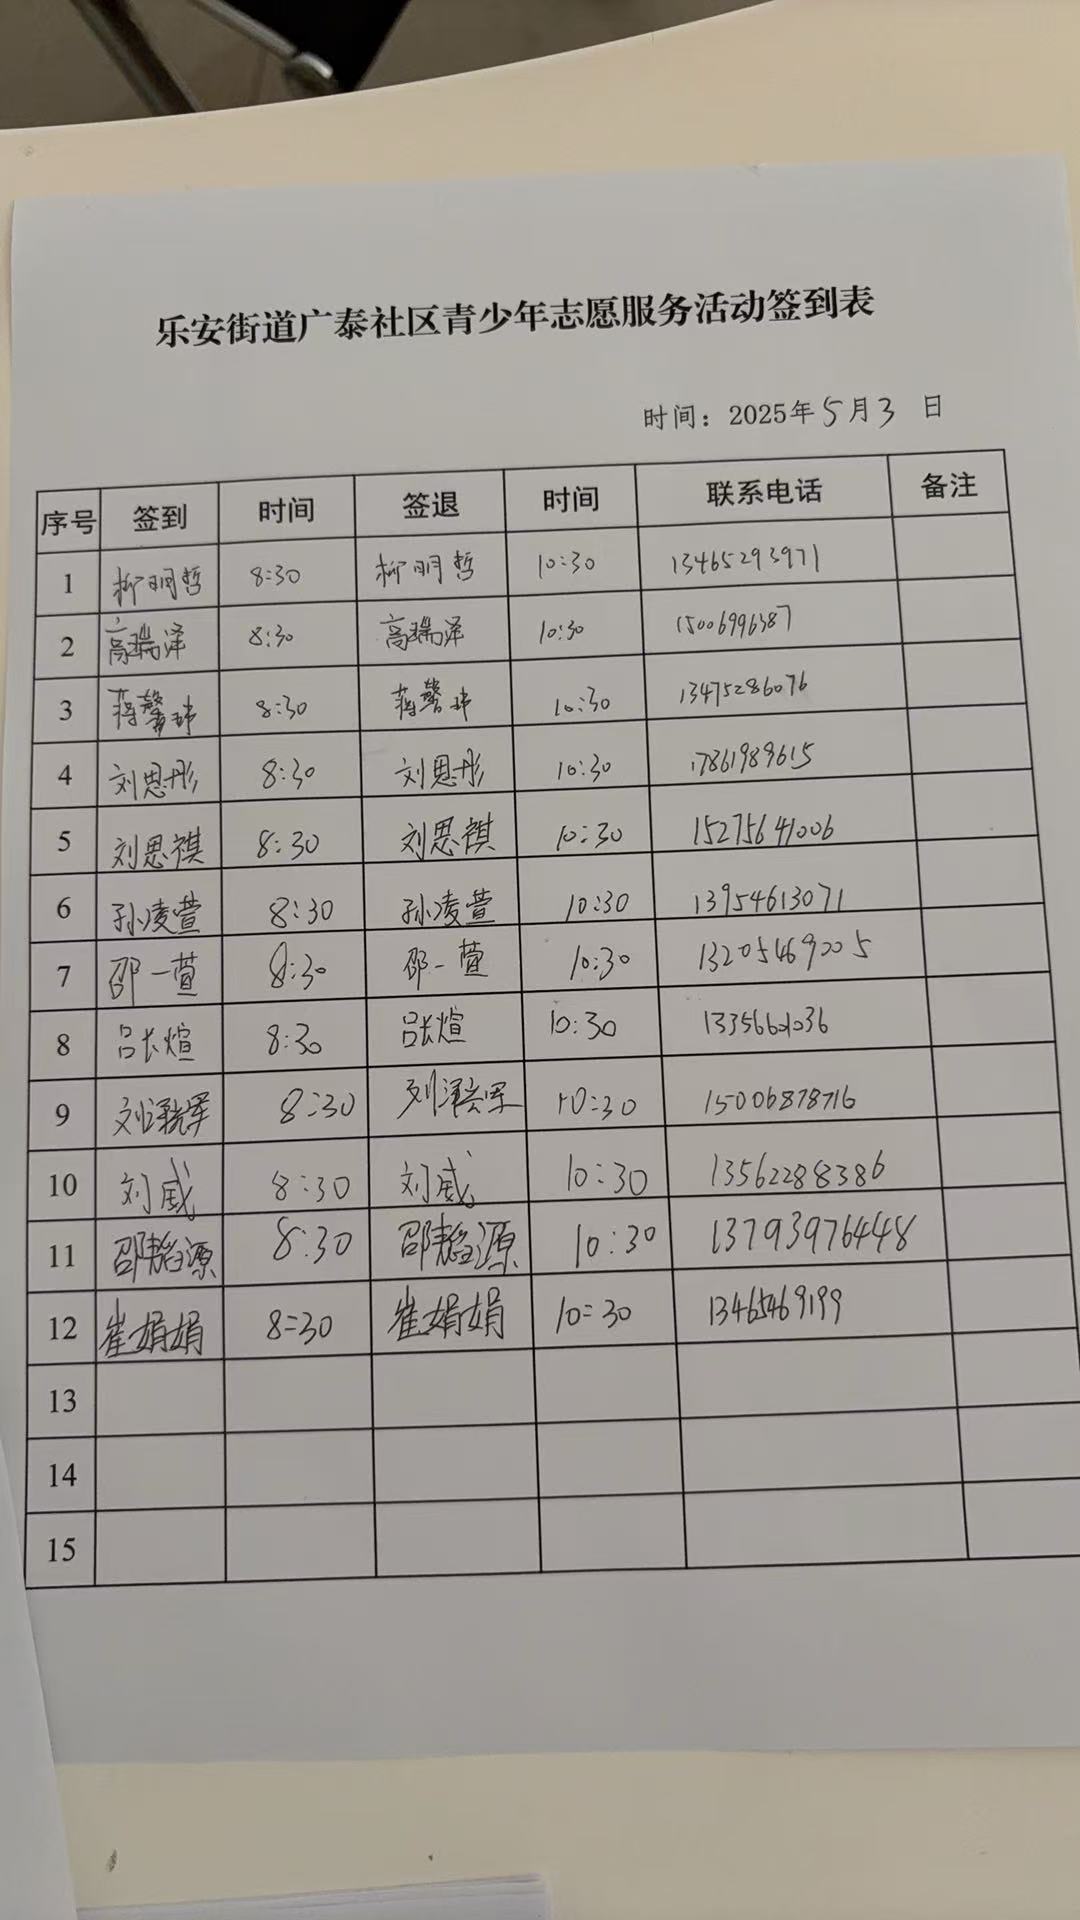 乐安街道广泰社区青少年志愿服务活动签到表
时间：2025年5月3日
序号 签到 时间 签退 时间 联系电话 备注
1 柳明哲 8:30 柳明哲 10:30 13465293971
2 高瑞泽 8:30 高瑞泽 10:30 15006996387
3 蒋馨玮 8:30 蒋馨玮 10:30 13475286076
4 刘思彤 8:30 刘思彤 10:30 17861989615
5 刘思祺 8:30 刘思祺 10:30 15275641006
6 孙凌萱 8:30 孙凌萱 10:30 13954613071
7 邵一萱 8:30 邵一萱 10:30 13205469005
8 吕长煊 8:30 吕长煊 10:30
9 8:30 10:30 15006878716
10 刘威 8:30 刘威 10:30 13562288386
11 邵韬源 8:30 邵韬源 10:30 13793976448
12 崔娟娟 8:30 崔娟娟 10:30 13465469199
13
14
15